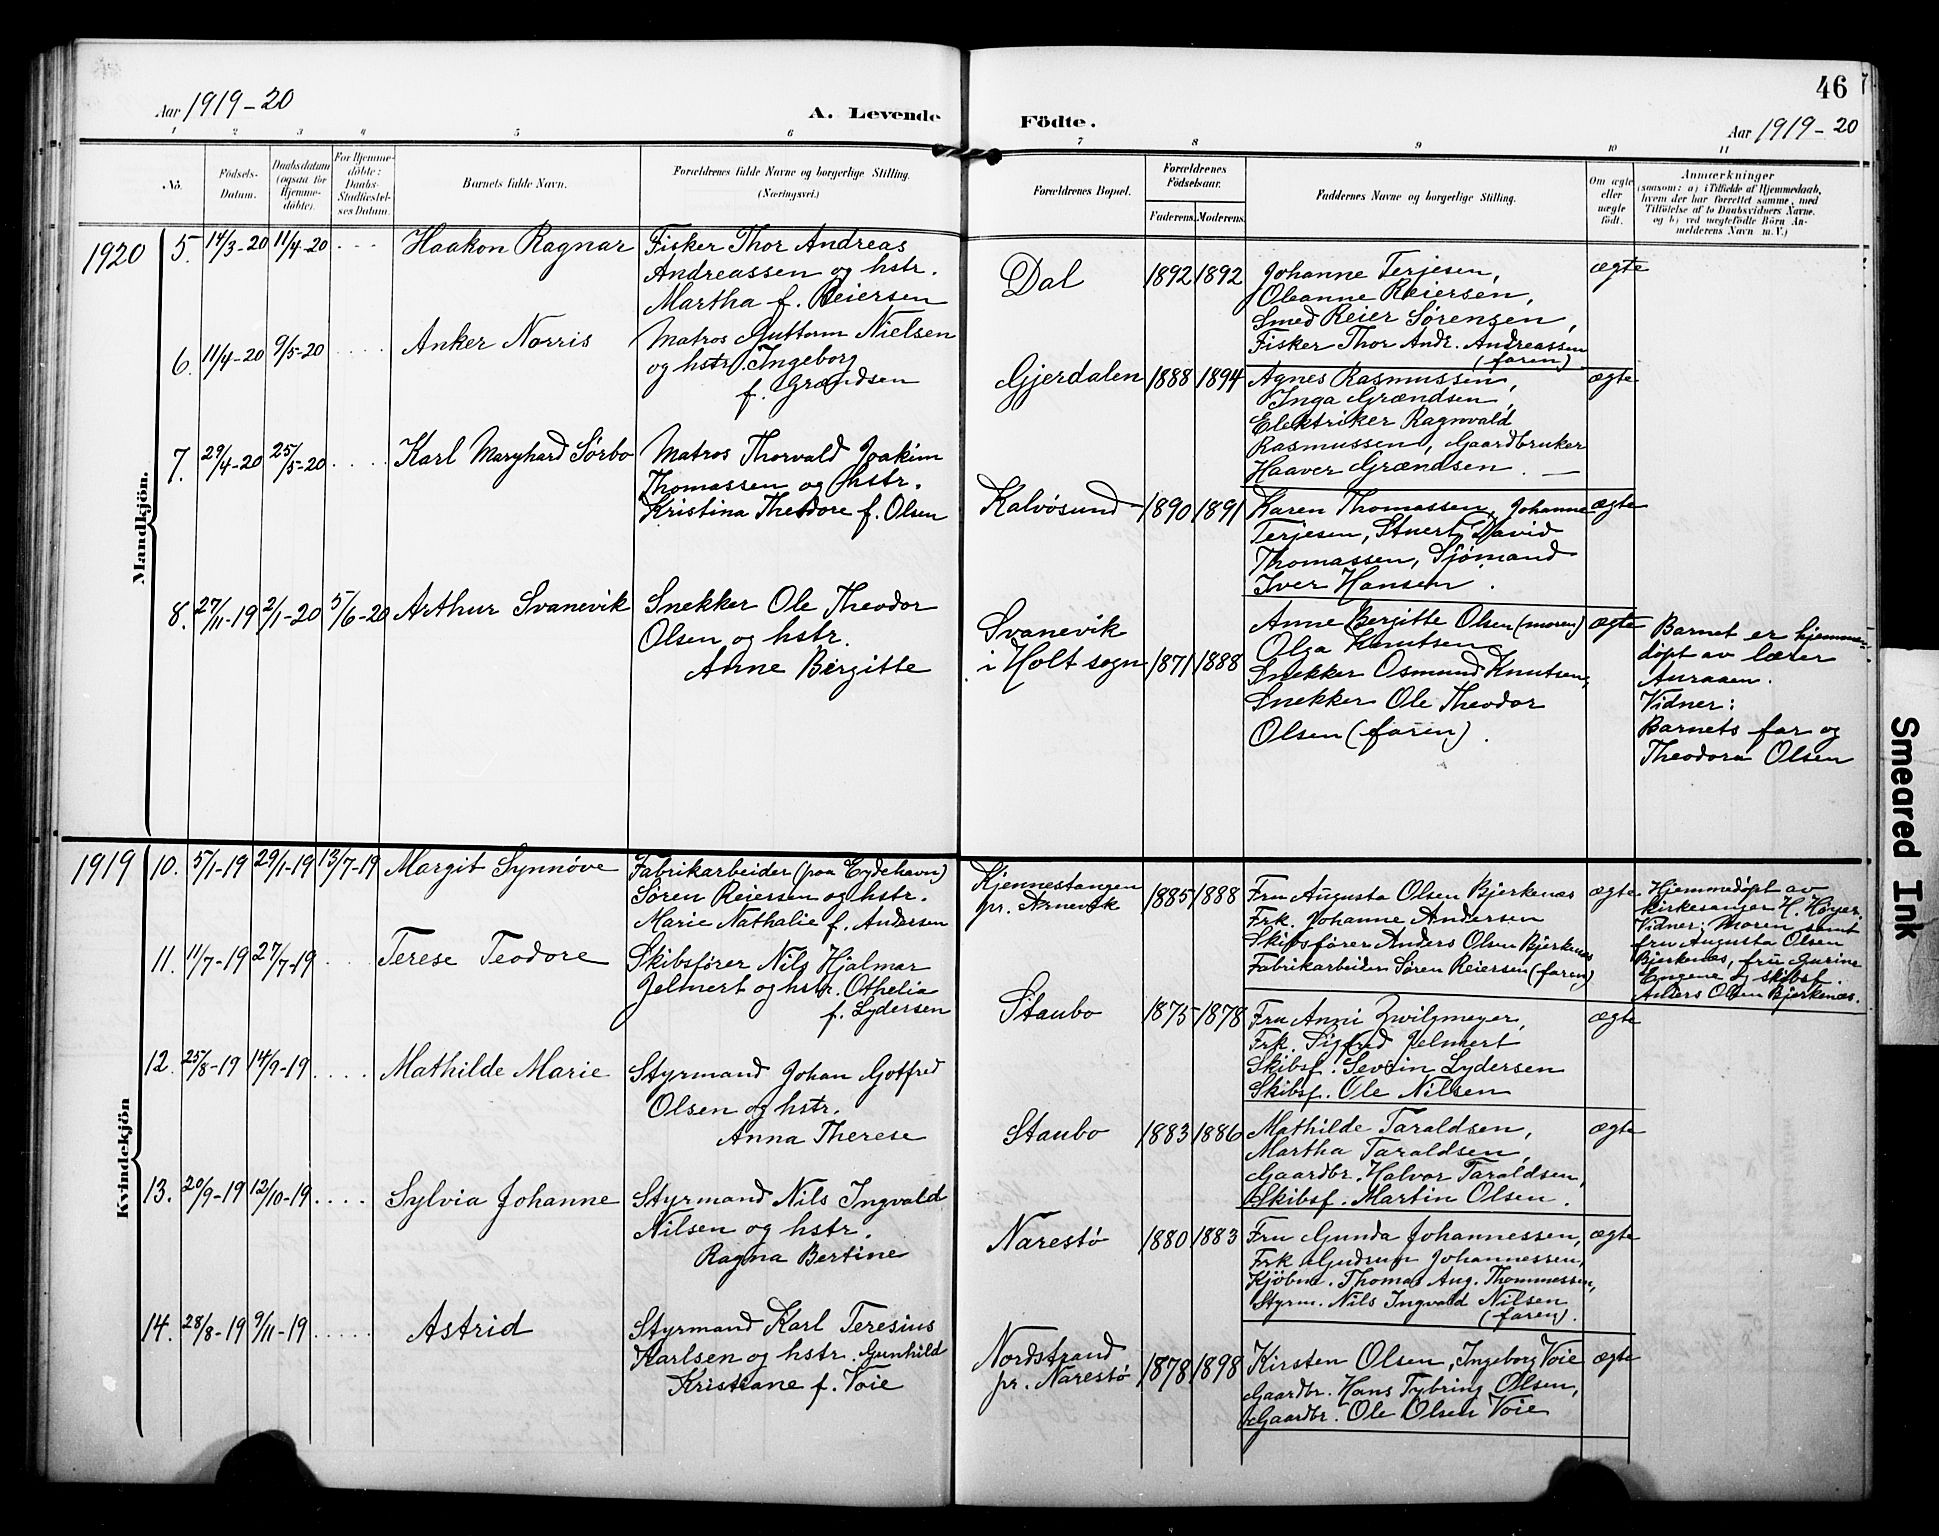 Aar 1919-20
A. Levende
Födte.
46
Aar 1919-20
1 2 3 4 5 6 7 8 9 10 11
No.
Födsels-
Datum.
Daabsdatum
(ogsaa for
Hjemme-
döbte).
For Hjemme-
döbte:
Daabs-
Stadfæstel-
ses Datum.
Barnets fulde Navn.
Forældrenes fulde Navne og borgerlige Stilling.
(Næringsvei.)
Forældrenes Bopæl.
Forældrenes
Födselsaar.
Faderens. Moderens.
Faddernes Navne og borgerlige Stilling.
Om ægte
eller
uægte
födt.
Anmærkninger
(saasom: a) i Tilfælde af Hjemmedaab,
hvem der har forrettet samme, med
Tilföielse af to Daabsvidners Navne.
og b) ved uægtefödte Börn An-
melderens Navn m. V.)
1920
Mandkjön.
5. 14/3-20 11/4-20 Haakon Ragnar
Fisker Thor Andreas
Andreassen og hstr.
Martha f. Reiersen
Dal 1892 1892
Johanne Terjesen,
Oleanne Reiersen,
Smed Reier Sörensen,
Fisker Thor Andr. Andreassen
(faren)
ægte
6. 11/4-20 9/5-20 Anker Norris
Matros Guttorm Nielsen
og hstr. Ingeborg
f. Grændsen
Gjerdalen 1888 1894
Agnes Rasmussen,
Inga Grændsen,
Elektriker Ragnvald
Rasmussen, Gaardbruker
Haaver Grændsen.
ægte
7. 29/4-20 25/5-20 Karl Maryhard Sörbo
Matros Thorvald Joakim
Thomassen og hstr.
Kristina Theodore f. Olsen
Kalvøsund 1890 1891
Karen Thomassen, Johanne
Terjesen, Stuert David
Thomassen, Sjömand
Iver Hansen.
ægte
8. 27/11-19 2/1-20 5/6-20 Arthur Svanevik
Snekker Ole Theodor
Olsen og hstr.
Anne Birgitte
Svanevik
i Holt sogn 1871 1888
Anne Bergitte Olsen (moren)
Olga Knutsen
Snekker Osmund Knutsen,
Snekker Ole Theodor
Olsen (faren).
ægte
Barnet er hjemme-
döpt av lærer
Auraaen.
Vidner:
Barnets far og
Theodora Olsen
1919
Kvindekjön
10. 5/1-19 29/1-19 13/7-19 Margit Synnöve
Fabrikarbeider (paa Eydehavn)
Sören Reiersen og hstr.
Marie Nathalie f. Andersen
Kjennestangen
pr. Arnevik 1885 1888
Fru Augusta Olsen Bjerkenæs
Frk. Johanne Andersen
Skibsfører Anders Olsen Bjerkenæs
Fabrikarbeider Sören Reiersen (faren)
ægte
Hjemmedöpt av
kirkesanger H. Höyer.
Vidner: Moren samt
fru Augusta Olsen
Bjerkenæs, fru Gurine
Engene og skibsf.
Anders Olsen Bjerkenæs.
11. 11/7-19 27/7-19 Terese Teodore
Skibsfører Nils Hjalmar
Jelmert og hstr. Othelia
f. Lydersen
Staubo 1875 1878
Fru Anni Zwilgmeyer,
Frk. Sigfrid Jelmert
Skibsf. Severin Lydersen
Skibsf. Ole Nilsen
ægte
12. 25/8-19 14/9-19 Mathilde Marie
Styrmand Johan Gotfred
Olsen og hstr.
Anna Therese
Staubo 1883 1886
Mathilde Taraldsen,
Martha Taraldsen,
Gaardbr. Halvor Taraldsen,
Skibsf. Martin Olsen.
ægte
13. 20/9-19 12/10-19 Sylvia Johanne
Styrmand Nils Ingvald
Nilsen og hstr.
Ragna Bertine
Narestö 1880 1883
Fru Gunda Johannessen,
Frk Gudrun Johannessen,
Kjöbm. Thomas Aug. Thommessen,
Styrm. Nils Ingvald Nilsen
(faren).
ægte
14. 28/8-19 9/11-19 Astrid
Styrmand Karl Teresius
Karlsen og hstr. Gunhild
Kristiane f. Voie
Nordstrand
pr. Narestö 1878 1898
Kirsten Olsen, Ingeborg Voie
Gaardbr. Hans Tybring Olsen,
Gaardbr. Ole Olsen Voie
ægte
Smeared Ink